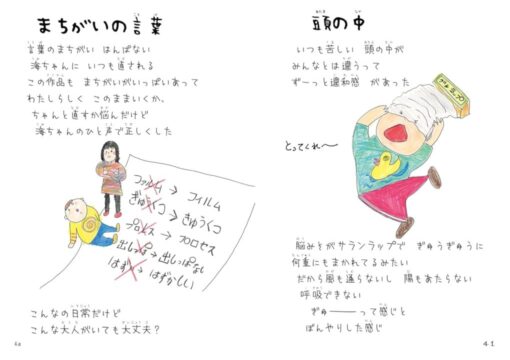 まちがいの言葉
言葉のまちがい はんぱない
海ちゃんに いつも直される
この作品も まちがいがいっぱいあって
わたしらしく このままいくか、
ちゃんと直すか悩んだけど
海ちゃんのひと声で正しくした
→ フィルム
→ きゅうくつ
→ プロセス
→ 出しっぱなし
→ はずかしい
こんなの日常だけど
こんな大人がいても大丈夫？
40
頭の中
いつも苦しい 頭の中が
みんなとは違うって
ず〜っと違和感 があった
とってくれ〜
脳みそがサランラップで ぎゅうぎゅうに
何重にもまかれてるみたい
だから風も通らないし 陽もあたらない
呼吸できない
ぎゅ——って感じと
ぼんやりした感じ
41